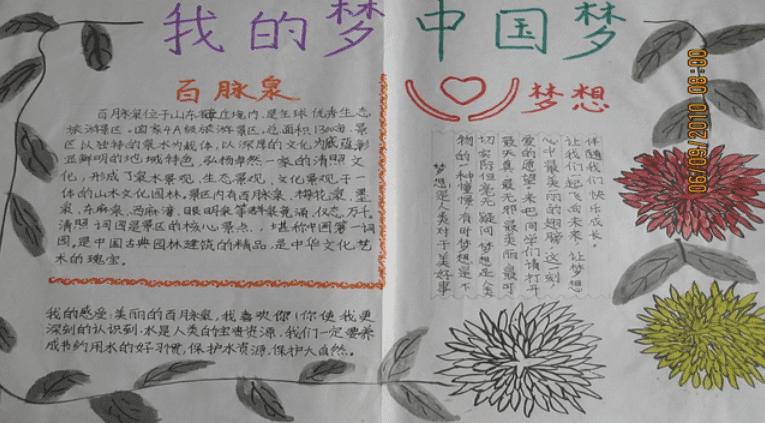 我的梦 中国梦
百脉泉
百脉泉位于山东章丘境内,是全球优秀生态
旅游景区。国家4A级旅游景区。总面积1300亩。景
区以独特的泉水为载体,以深厚的文化为底蕴,彰
显鲜明的地域特色,弘扬卓然一家的清照文
化,形成了泉水景观、生态景观、文化景观于一
体的山水文化园林。景区内有百脉泉、梅花泉、墨
泉、东麻泉、西麻湾、眼明泉等群泉竞涌,仪态万千。
清照词园是景区的核心景点,堪称中国第一词
园,是中国古典园林建筑的精品,是中华文化艺
术的瑰宝。
我的感受:美丽的百脉泉,我喜欢你!你使我更
深刻的认识到:水是人类的宝贵资源,我们一定要养
成节约用水的好习惯,保护水资源,保护大自然。
梦想
梦想是人类对于美好事
物的一种憧憬,有时梦想是不
切实际但毫无疑问梦想是人类
最天真最无邪最美丽最可
爱的愿望。来吧同学们请打开
心中最美丽的翅膀,这一刻
让我们一起飞向未来,让梦想
伴随我们快乐成长。
06/09/2010 08:00